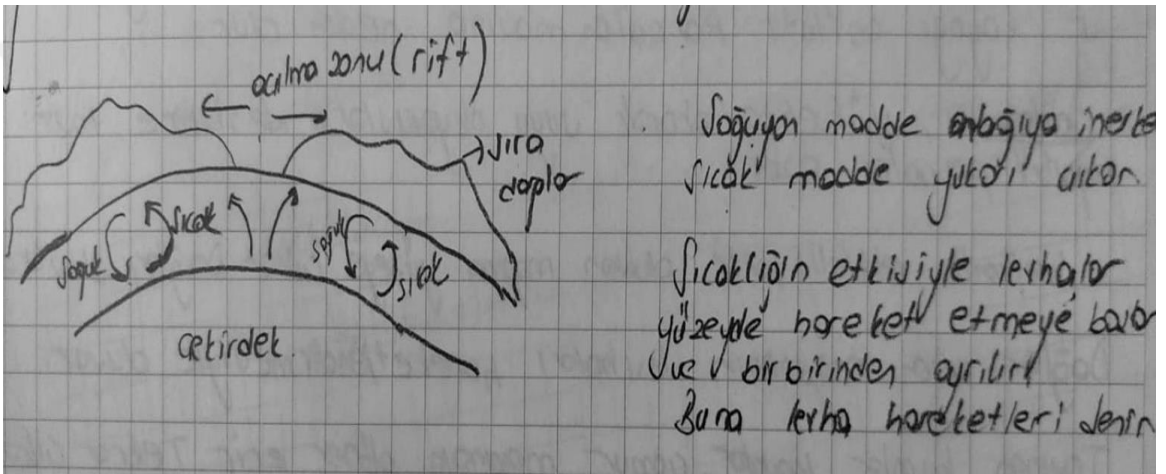 açılma zonu (rift)
sıra
dağlar
soğuk
sıcak
soğuk
sıcak
çekirdek.
Soğuyan madde aşağıya inerke
sıcak madde yukarı çıkar.
Sıcaklığın etkisiyle levhalar
yüzeyde hareket etmeye başlar
ve birbirinden ayrılır.
Buna levha hareketleri denir